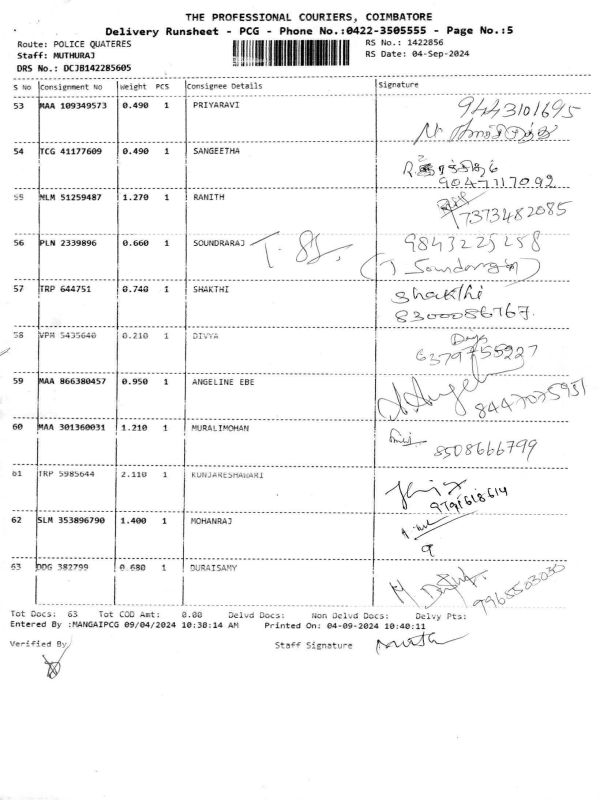 THE PROFESSIONAL COURIERS, COIMBATORE
Delivery Runsheet - PCG - Phone No.:0422-3505555 - Page No.:5
Route: POLICE QUATERES
RS No.: 1422856
Staff: MUTHURAJ
RS Date: 04-Sep-2024
DRS No.: DCJB142285605
S No Consignment No Weight PCS Consignee Details Signature
53 MAA 109349573 0.490 1 PRIYARAVI 9443101695
54 TCG 41177609 0.490 1 SANGEETHA
9047117092
55 MLM 51259487 1.270 1 RANITH
7373482085
56 PLN 2339896 0.660 1 SOUNDRARAJ 9843225258
57 TRP 644751 0.740 1 SHAKTHI Shakthi
8300086767.
58 VPM 5435640 0.210 1 DIVYA
6379755227
59 MAA 866380457 0.950 1 ANGELINE EBE
8447075931
60 MAA 301360031 1.210 1 MURALIMOHAN
8508666799
61 TRP 5985644 2.110 1 KUNJARESHWARI
9791618614
62 SLM 353896790 1.400 1 MOHANRAJ
9
63 DDG 382799 0.680 1 DURAISAMY
9965503030
Tot Docs: 63 Tot COD Amt: 0.00 Delvd Docs: Non Delvd Docs: Delvy Pts:
Entered By :MANGAIPCG 09/04/2024 10:38:14 AM Printed On: 04-09-2024 10:40:11
Verified By Staff Signature